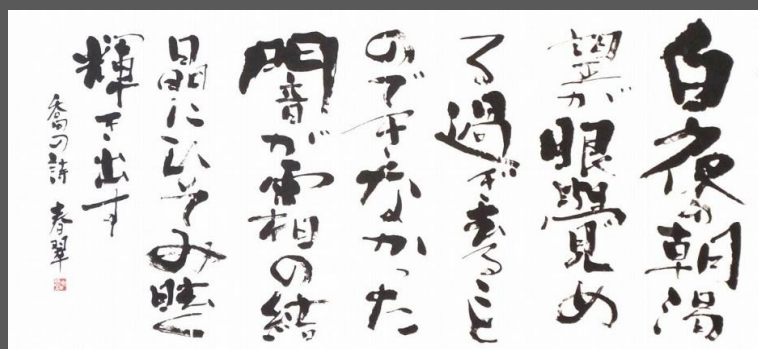 白夜の朝渇
望が眼覺め
る過ぎ去ること
のできなかった
闇が霜の結
晶にひそみ眩く
輝き出す
詩 春翠